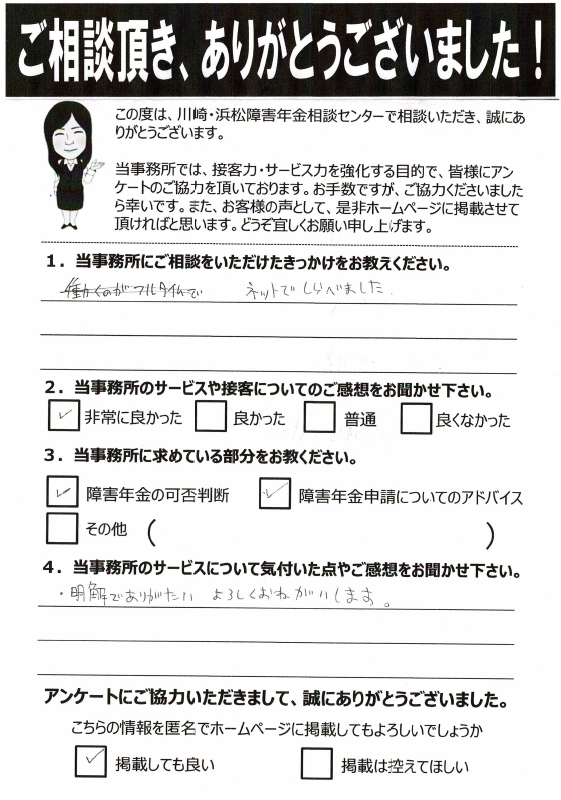 ご相談頂き、ありがとうございました！
この度は、川崎・浜松障害年金相談センターで相談いただき、誠にあ
りがとうございます。
当事務所では、接客力・サービス力を強化する目的で、皆様にアン
ケートのご協力を頂いております。お手数ですが、ご協力くださいました
ら幸いです。また、お客様の声として、是非ホームページに掲載させて
頂ければと思います。どうぞ宜しくお願い申し上げます。
1．当事務所にご相談をいただけたきっかけをお教えください。
働くのがフルタイムで ネットでしらべました.
2．当事務所のサービスや接客についてのご感想をお聞かせ下さい。
✓ 非常に良かった 良かった 普通 良くなかった
3．当事務所に求めている部分をお教ください。
✓ 障害年金の可否判断 ✓ 障害年金申請についてのアドバイス
その他 ( )
4．当事務所のサービスについて気付いた点やご感想をお聞かせ下さい。
・明解でありがたい よろしくおねがいします。
アンケートにご協力いただきまして、誠にありがとうございました。
こちらの情報を匿名でホームページに掲載してもよろしいでしょうか
✓ 掲載しても良い 掲載は控えてほしい